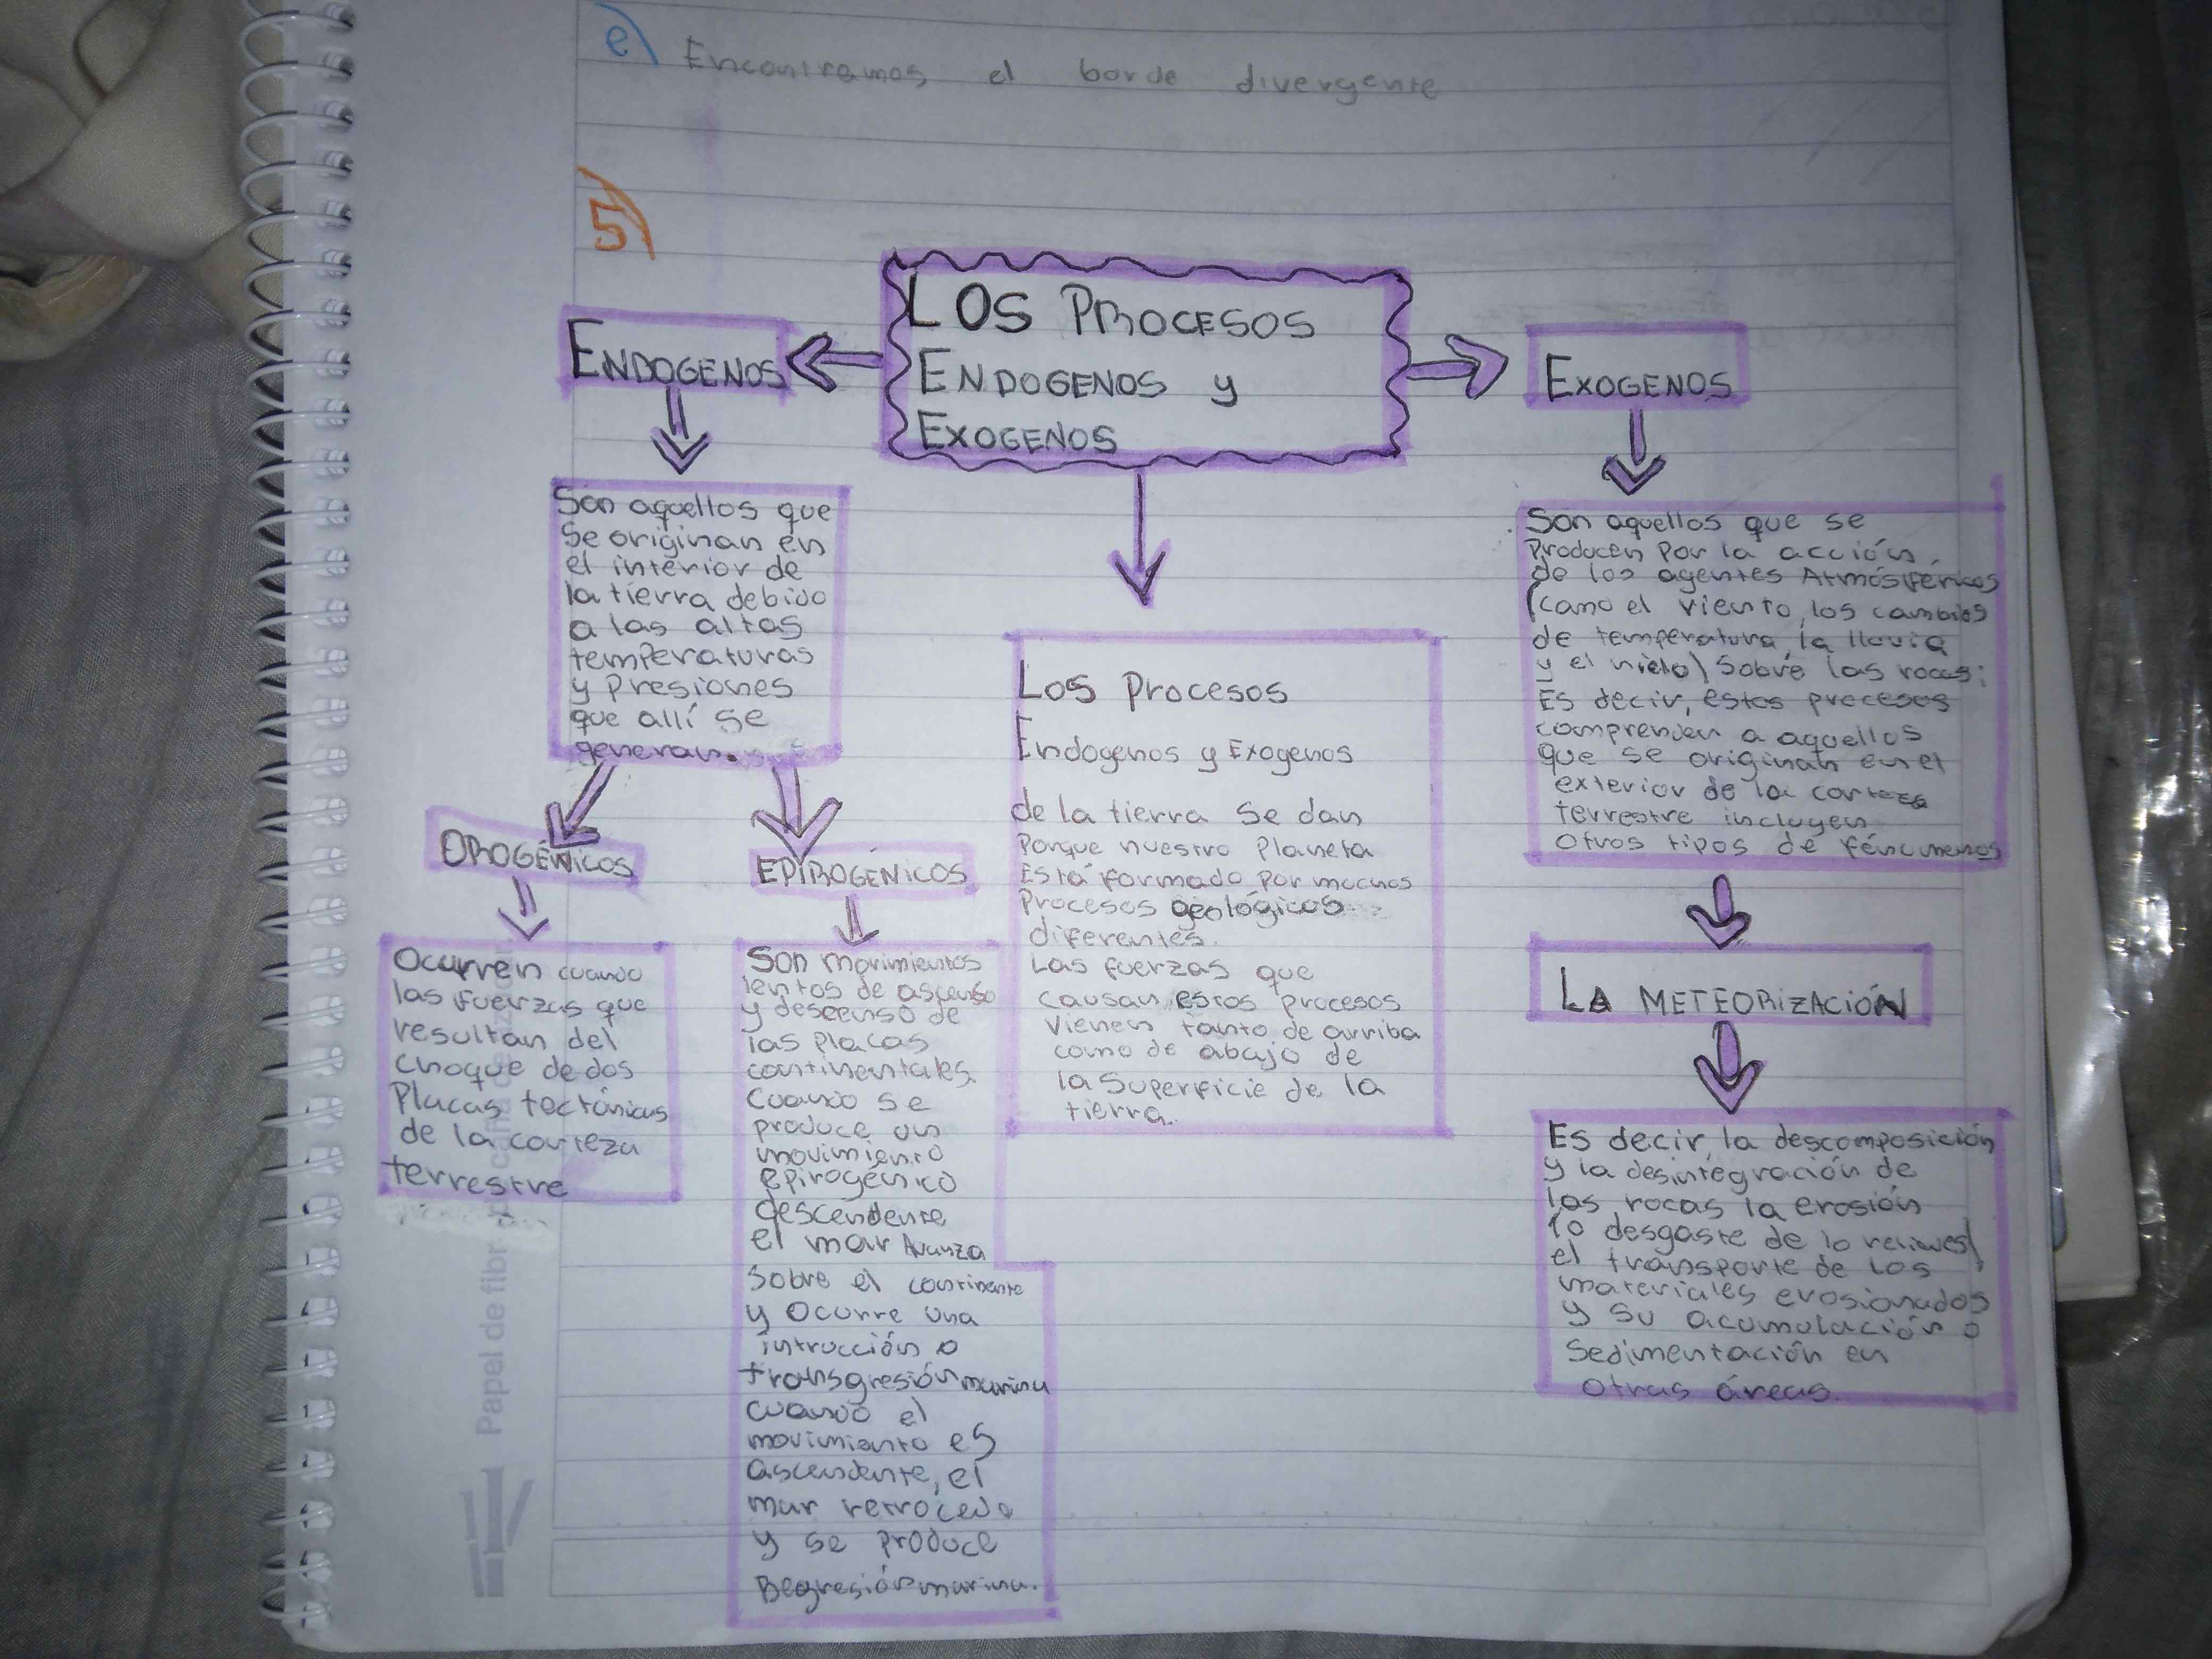 e) Encontramos el borde divergente
5)
LOS PROCESOS
ENDOGENOS y
EXOGENOS
ENDOGENOS
Son aquellos que
se originan en
el interior de
la tierra debido
a las altas
temperaturas
y presiones
que allí se
generan.
OROGÉNICOS
Ocurren cuando
las fuerzas que
resultan del
choque de dos
Placas tectónicas
de la corteza
terrestre
EPIROGÉNICOS
Son movimientos
lentos de ascenso
y descenso de
las placas
continentales.
Cuando se
produce un
movimiento
epirogénico
descendente
el mar Avanza
sobre el continente
y ocurre una
intrucción o
transgresión marina
cuando el
movimiento es
ascendente, el
mar retrocede
y se produce
Regresión marina.
Los Procesos
Endogenos y Exogenos
de la tierra se dan
Porque nuestro Planeta
Está formado por muchos
Procesos geológicos
diferentes.
Las fuerzas que
causan estos procesos
vienen tanto de arriba
como de abajo de
la superficie de la
tierra.
EXOGENOS
Son aquellos que se
Producen por la acción
de los agentes Atmósféricos
(como el viento, los cambios
de temperatura, la lluvia
y el hielo) sobre las rocas;
Es decir, estos procesos
comprenden a aquellos
que se originan en el
exterior de la corteza
terrestre incluyen
otros tipos de fénomenos
LA METEORIZACIÓN
Es decir, la descomposición
y la desintegración de
las rocas la erosión
(o desgaste de lo relieves)
el transporte de los
materiales erosionados
y su acumulación o
sedimentación en
otras áreas.
Papel de fibr